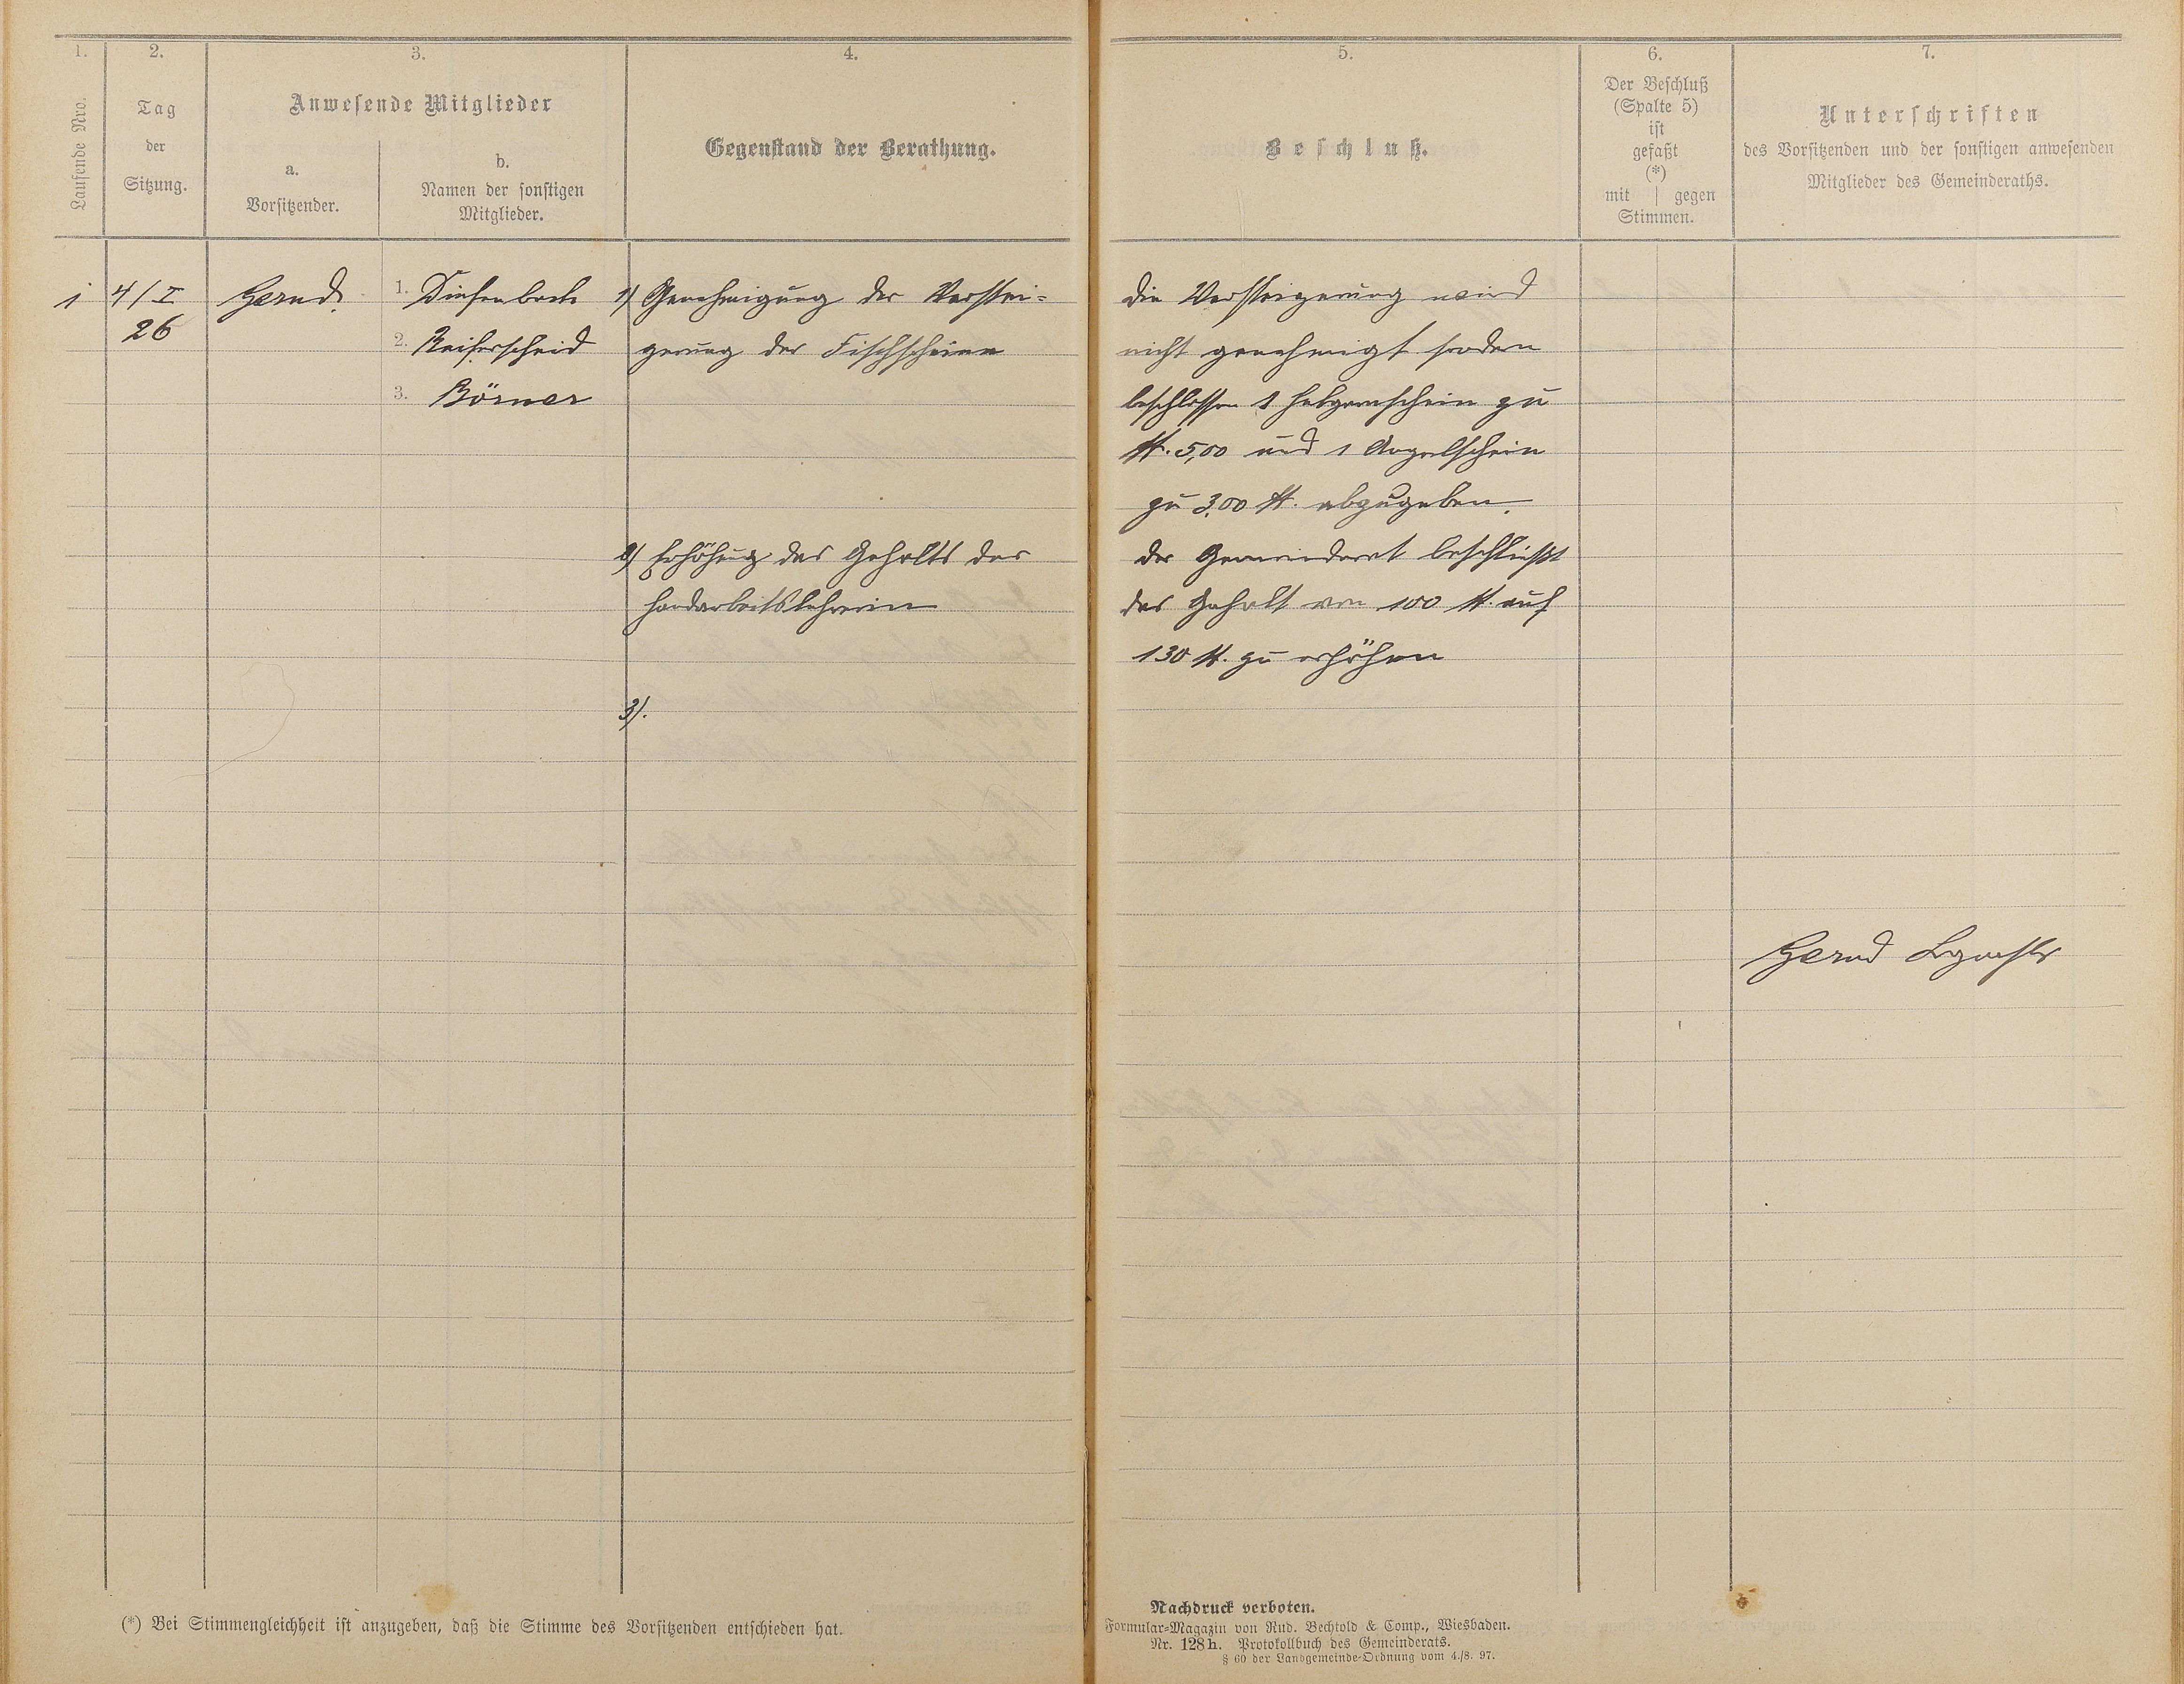 1.
2.
3.
4.
Laufende Nro.
Tag
der
Sitzung.
Anwesende Mitglieder
a.
Vorsitzender.
b.
Namen der sonstigen
Mitglieder.
Gegenstand der Berathung.
1 4/I Gernd. 1. Diefenbach 1) Genehmigung der Verstei=
26 2. Reiferscheid gerung der Fischscheine
3. Börner
2) Erhöhung des Gehalts der
Handarbeitslehrerin
3).
(*) Bei Stimmengleichheit ist anzugeben, daß die Stimme des Vorsitzenden entschieden hat.
5.
6.
7.
Beschluß.
Der Beschluß
(Spalte 5)
ist
gefaßt
(*)
mit | gegen
Stimmen.
Unterschriften
des Vorsitzenden und der sonstigen anwesenden
Mitglieder des Gemeinderaths.
Die Versteigerung wird
nicht genehmigt sondern
beschlossen 1 zu
M. 5,00 und 1 Angelschein
zu 3,00 M. abzugeben.
Der Gemeinderat beschließt
das Gehalt von 100 M. auf
130 M. zu erhöhen
Gernd
Nachdruck verboten.
Formular-Magazin von Rud. Bechtold & Comp., Wiesbaden.
Nr. 128h. Protokollbuch des Gemeinderats.
§ 60 der Landgemeinde-Ordnung vom 4./8. 97.